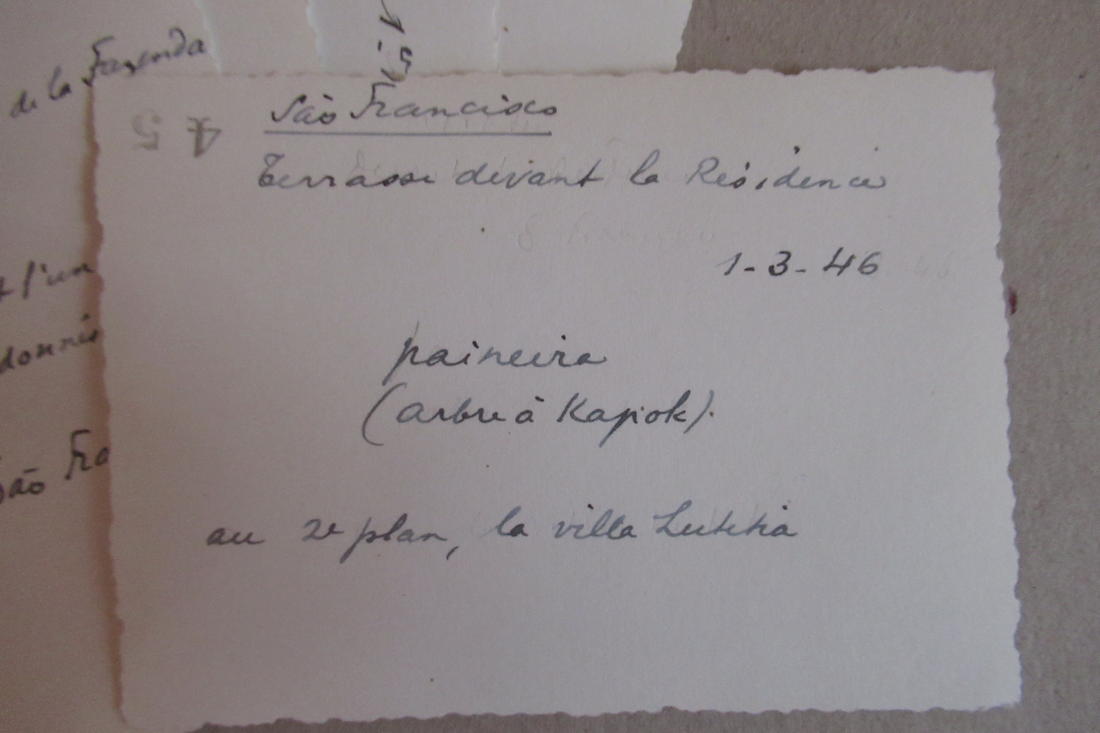 de la Fazenda
São Francisco
Terrasse devant la Résidence
1-3-46
paineira
(arbre à Kapok).
au 2e plan, la villa Lutetia
45
l'un
donnés
São Fra